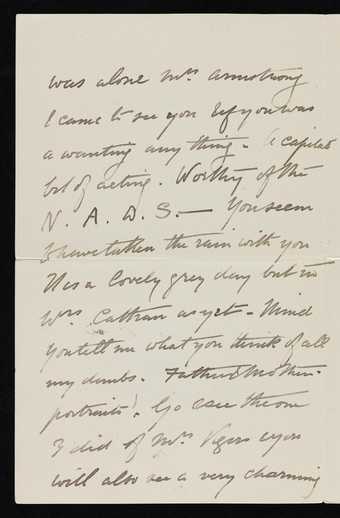 was alone Mrs Armstrong
I came to see you & if you was
a wanting any thing - A capital
bit of acting. Worthy of the
N. A. D. S. — You seem
to have taken the rain with you
It is a lovely grey day but no
Mrs Cattran as yet - Mind
you tell me what you think of all
my daubs. Father & Mother
portraits! Go & see the one
I did of Mrs Vigers & you
will also see a very charming